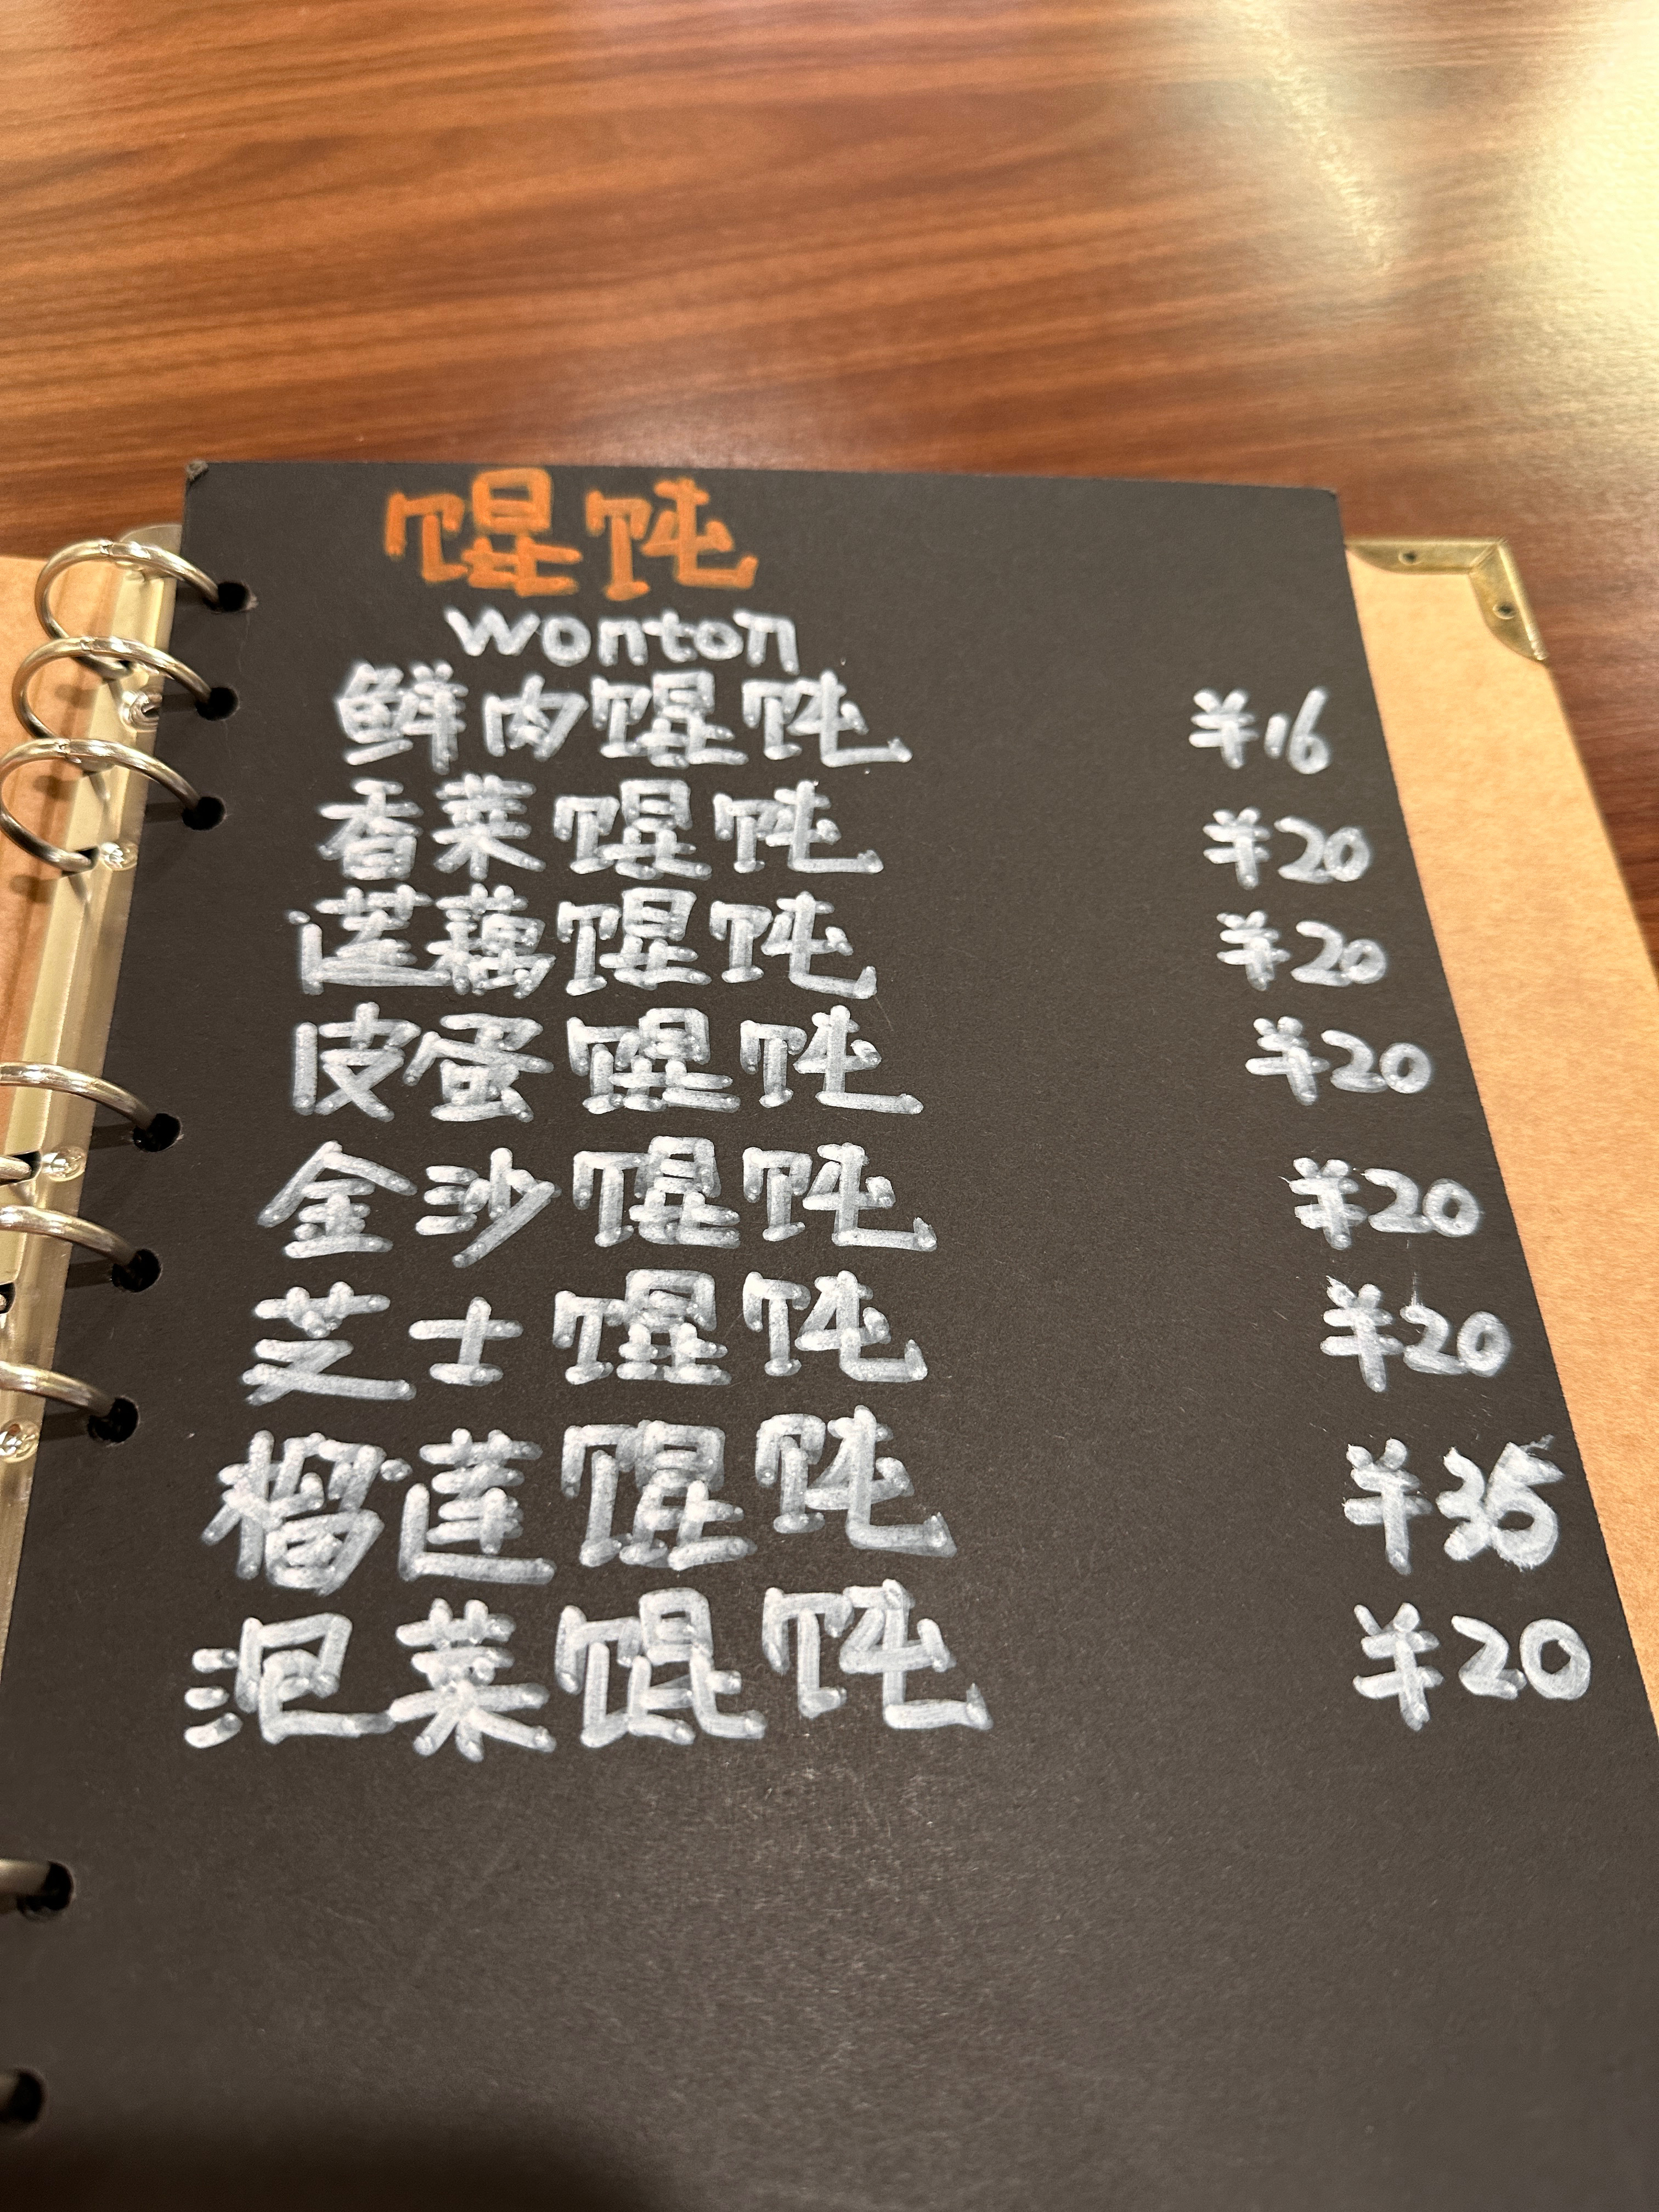 馄饨
wonton
鲜肉馄饨 ¥16
香菜馄饨 ¥20
莲藕馄饨 ¥20
皮蛋馄饨 ¥20
金沙馄饨 ¥20
芝士馄饨 ¥20
榴莲馄饨 ¥35
泡菜馄饨 ¥20